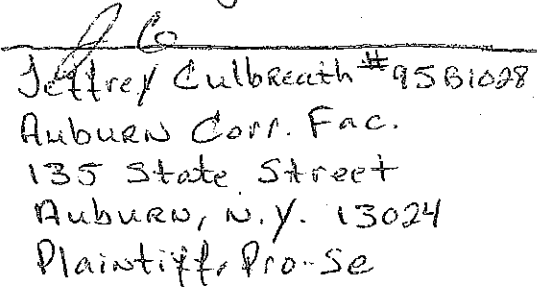 Jeffrey Culbreath #95B1028
Auburn Corr. Fac.
135 State Street
Auburn, N.Y. 13024
Plaintiff, Pro-Se